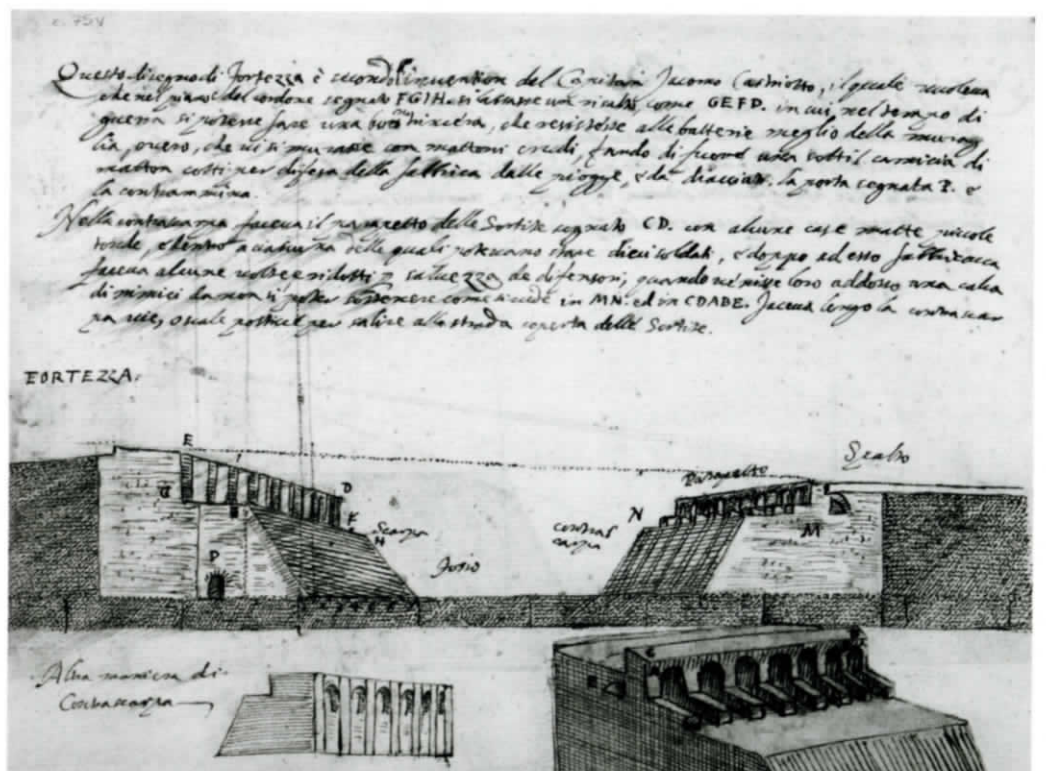 c. 75v
Questo disegno di Fortezza è secondo l'invention del Capitan Jacomo Castriotto, il quale voleva
che nel piano del cordone segnato FGIH. si lasciasse un risalto, come GEFD. in cui, nel tempo di
guerra si potesse fare una buona trincera, che resistesse alle batterie meglio della murag
lia, overo, che vi si murasse con mattoni crudi, facendo di fuori una sottil camicia di
matton cotti per difesa della fabbrica dalle piogge, e da diacciati. la porta segnata P. è
la contrammina.
Nella contrascarpa faceva il parapetto delle Sortite segnato CD. con alcune case matte piccole
tonde, e dentro a ciascuna delle quali potevano stare dieci soldati, e doppo ad esso fabbricava
faceva alcune volte e ridotti per salvezza de difensori, quando venisse loro addosso una calca
di nimici da non si poter sostenere come si vede in MN. ed in CDADE. faceva lungo la contrascar
pa vie, o scale posticce per salire alla strada coperta delle Sortite.
FORTEZZA.
E
G
D
F
H
Scarpa
P
Fosso
Contrascarpa
N
Parapetto
M
Spalto
Altra maniera di
Contrascarpa
C